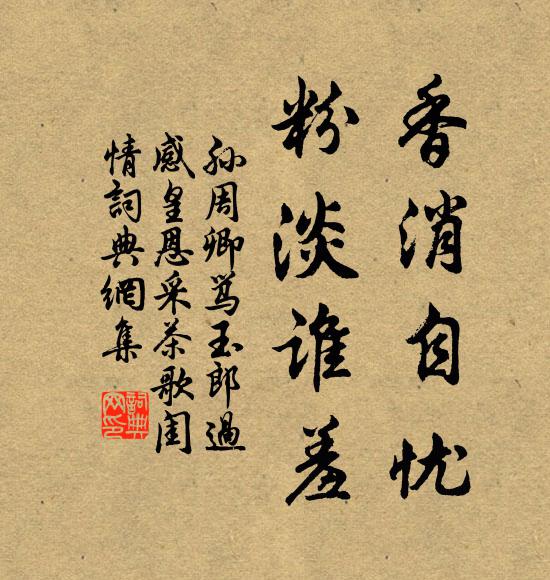 香消自忧
粉淡谁羞
孙周卿骂玉郎過
感皇恩采茶歌閨
情詞典網集
詞典
网印